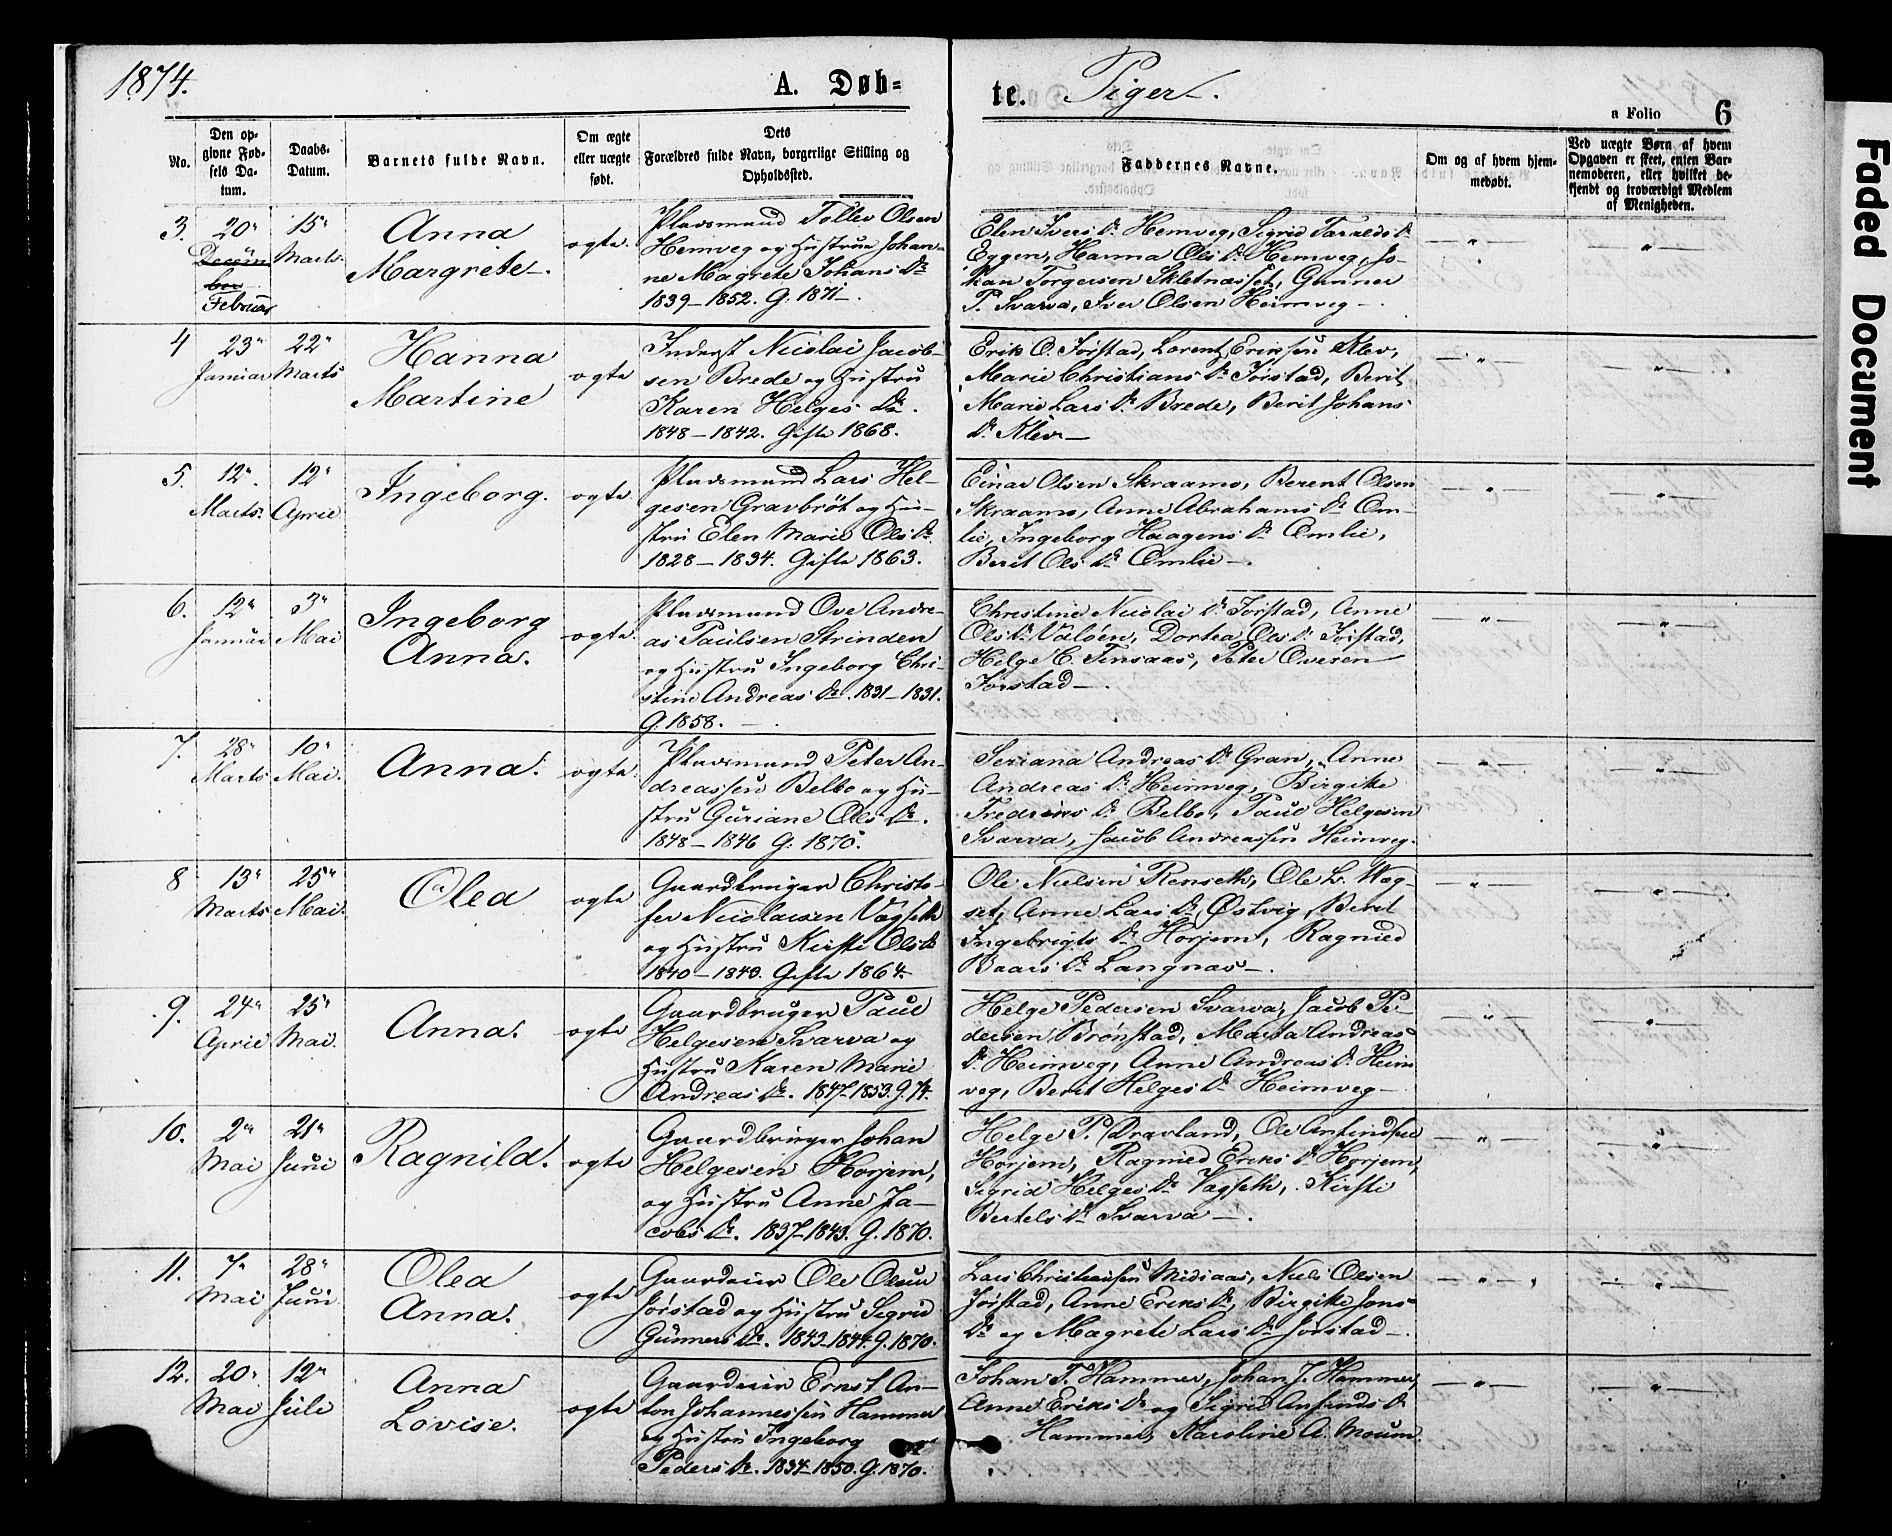 1874.
A. Døb=
te.
Piger.
a Folio
6
No.
Den op-
givne Fød-
sels Da-
tum.
Daabs-
Datum.
Barnets fulde Navn.
Om ægte
eller uægte
født.
Dets
Forældres fulde Navn, borgerlige Stilling og
Opholdssted.
Faddernes Navne.
Om og af hvem hjem-
medøbt.
Ved uægte Børn af hvem
Opgaven er skeet, enten Bar-
nemoderen, eller hvilket be-
kjendt og troværdigt Medlem
af Menigheden.
3.
20"
Decem
ber
Februar
15"
Marts.
Anna
Margrete.
ægte.
Pladsmand Tollev Olsen
Hemveg og Hustru Johan-
ne Magrete Johans Dr
1839-1852. G. 1871.
Elen Ivers Dr Hemveg, Sigrid Taralds Dr
Eggen, Hanna Ols Dr Hemveg, Jo-
han Torgersen Skletnæsset, Gunner
P. Svarva, Iver Olsen Heimveg
4
23"
Januar
22"
Marts
Hanna
Martine
ægte
Inderst Nicolai Jacob-
sen Brede og Hustru
Karen Helges Dr.
1848-1842. Gifte 1868.
Erik O. Jørstad, Lorentz Eriksen Klev,
Marie Christians Dr Jørstad, Berit
Marie Lars Dr Brede, Berit Johans
Dr Klev
5.
12"
Marts.
12"
April
Ingeborg.
ægte.
Pladsmand Lars Hel-
gesen Gravbröt og Hu-
stru Elen Marie Ols Dr
1828-1834. Gifte 1863.
Einar Olsen Skraamo, Berent Olsen
Skraamo, Anne Abrahams Dr Om-
lie, Ingeborg Haagens Dr Omlie,
Berit Ols Dr Omlie
6.
12"
Januar
3"
Mai
Ingeborg
Anna.
ægte.
Pladsmand Ove Andre-
as Paulsen Strinden
og Hustru Ingeborg Chri-
stine Andreas Dr. 1831-1831.
G. 1858.
Christine Nicolai Dr Jørstad, Anne
Ols Dr Valöen, Dortea Ols Dr Jørstad,
Helge C. Finsaas, Peter Overen
Jørstad
7.
28"
Marts
10"
Mai.
Anna.
ægte.
Pladsmand Peter An-
dreassen Belbo og Hu-
stru Guriane Ols Dr.
1848-1846 G. 1870.
Seriana Andreas Dr Gran, Anne
Andreas Dr Heimveg, Birgitte
Fredriks Dr Belbo, Paul Helgesen
Svarva, Jacob Andreassen Heimveg.
8
13"
Marts
25"
Mai.
Olea
ægte
Gaardbruger Christo-
fer Nicolaisen Vagseth
og Hustru Kirsti Ols Dr
1840-1840. Gifte 1864.
Ole Nielsen Renseth, Ole L. Vog-
set, Anne Lars Dr Østvig, Berit
Ingebrigts Dr Horjem, Ragnied
Baars Dr Langnæs
9.
24"
April
25"
Mai.
Anna.
ægte
Gaardbruger Paul
Helgesen Svarva og
Hustru Karen Marie
Andreas Dr. 1847-1853. G. 74.
Helge Pedersen Svarva, Jacob Pe-
dersen Brønstad, Marta Andreas
Dr Heimveg, Anne Andreas Dr Heim
veg, Berit Helges Dr Heimveg
10.
2"
Mai
21"
Juni
Ragnild.
ægte
Gaardbruger Johan
Helgesen Horjem,
og Hustru Anne Ja-
cobs Dr. 1837-1843. G. 1870.
Helge P. Dravland, Ole Anfindsen
Horjem, Ragnied Eriks Dr Horjem,
Sigrid Helges Dr Vagseth, Kirsti
Bertels Dr Svarva
11.
7"
Mai
28"
Juni
Olea
Anna.
ægte
Gaardeier Ole Olsen
Jørstad og Hustru Sigrid
Gunners Dr. 1843-1844. G. 1870.
Lars Christensen Midiaas, Niels Olsen
Jørstad, Anne Eriks Dr, Birgitte Jons
Dr og Magrete Lars Dr Jørstad
12.
20"
Mai
12"
Juli
Anna
Lovise.
ægte
Gaardeier Ernst An-
ton Johannessen Hammer
og Hustru Ingeborg
Peders Dr. 1834-1850. G. 1870.
Johan T. Hammer, Johan J. Hammer,
Anne Eriks Dr og Sigrid Anfinds Dr
Hammer, Karoline A. Moum.
Faded Document